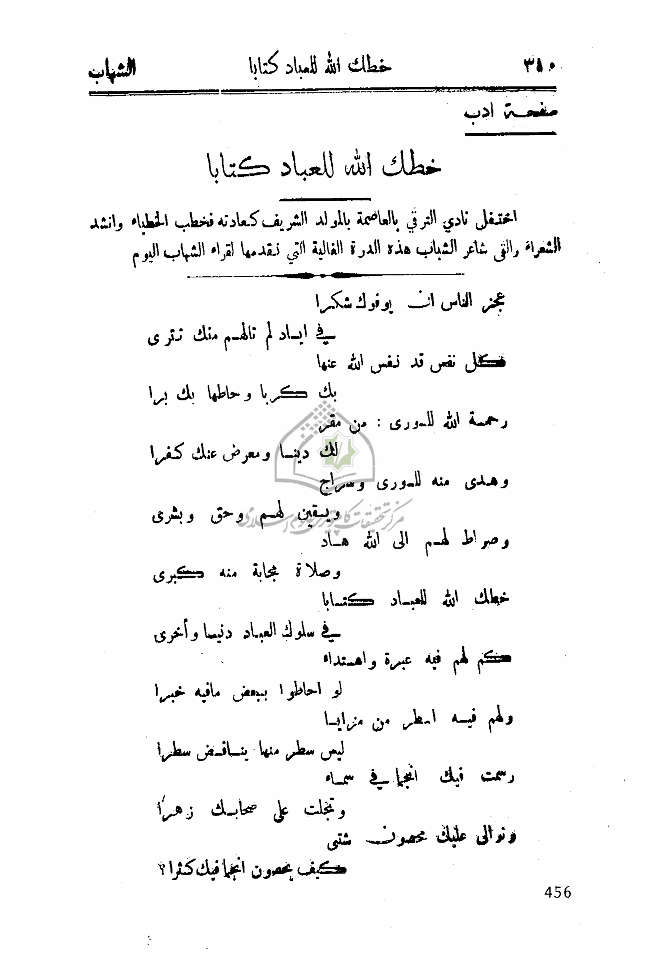 ٣٨٠ خطك الله للعباد كتابا الشهاب
صفحة ادب
خطك الله للعباد كتابا
احتفل نادي الترقي بالعاصمة بالمولد الشريف كعادته فخطب الخطباء وانشد
الشعراء والقى شاعر الشباب هذه الدرة الغالية التي نقدمها لقراء الشهاب اليوم
عجز الناس ان يوفوك شكرا
في اياد لم تالهم منك تترى
فكل نفس قد نفس الله عنها
بك كربا وحاطها بك برا
رحمة الله للورى : من مقر
لك دينا ومعرض عنك كفرا
وهدى منه للورى وسراج
ويقين لهم وحق وبشرى
وصراط لهم الى الله هاد
وصلاة مجابة منه كبرى
خطك الله للعباد كتابا
في سلوك العباد دنيا وأخرى
كم لهم فيه عبرة واهتداء
لو احاطوا ببعض مافيه خبرا
ولهم فيه اسطر من مزايا
ليس سطر منها يناقض سطرا
رسمت فيك انجما في سماء
وتجلت على صحابك زهرا
وتوالى عليك محصون شتى
كيف يحصون انجما فيك كثرا ؟
456